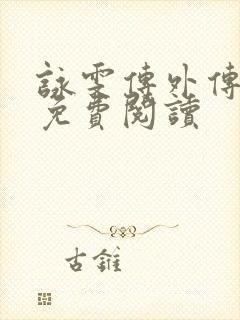 詠雯傳外傳
免費閱讀
古錐